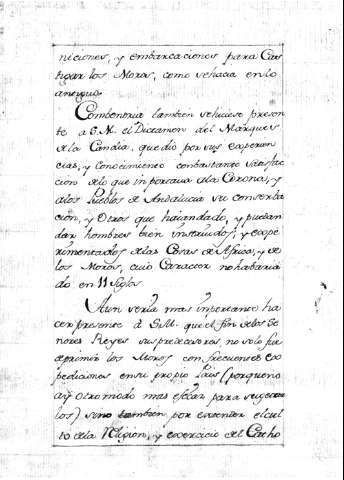 niciones, y embarcaciones para Cas
tigar los Moros, como sehacia enlo
antiguo.
Combendria tambien sehiciese presen
te a S.M. el Dictamen del Marques
dela Candia, que dio por sus experien
cias, y Conocimiento conbastante satisfac
cion delo que importava ala Corona, y
alos Pueblos de Andalucia su conserba
cion, y Otros que haiandado, y puedan
dar hombres bien instruidos, y expe
rimentados delas Cosas de Africa, y de
los Moros, cuio Caracter nohabaria
do en 11 Siglos.
Aun seria mas importante ha
cer presente á S.M. que el fin delos Se
ñores Reyes suspredecesores, no solo fue
deprimir los Moros con frecuentes ex
pediciones ensu propio Pais (porqueno
ay Otro modo mas eficaz para sugetar
los) sino tambien por extender el cul
to dela Religion, y exercicio del Catho